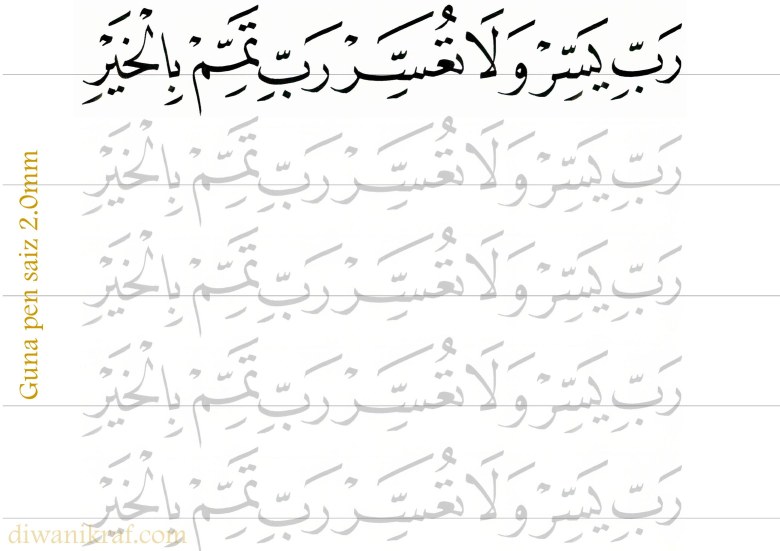 رَبِّ يَسِّرْ وَلَا تُعَسِّرْ رَبِّ تَمِّمْ بِالْخَيْرِ
رَبِّ يَسِّرْ وَلَا تُعَسِّرْ رَبِّ تَمِّمْ بِالْخَيْرِ
رَبِّ يَسِّرْ وَلَا تُعَسِّرْ رَبِّ تَمِّمْ بِالْخَيْرِ
رَبِّ يَسِّرْ وَلَا تُعَسِّرْ رَبِّ تَمِّمْ بِالْخَيْرِ
رَبِّ يَسِّرْ وَلَا تُعَسِّرْ رَبِّ تَمِّمْ بِالْخَيْرِ
Guna pen saiz 2.0mm
diwanikraf.com